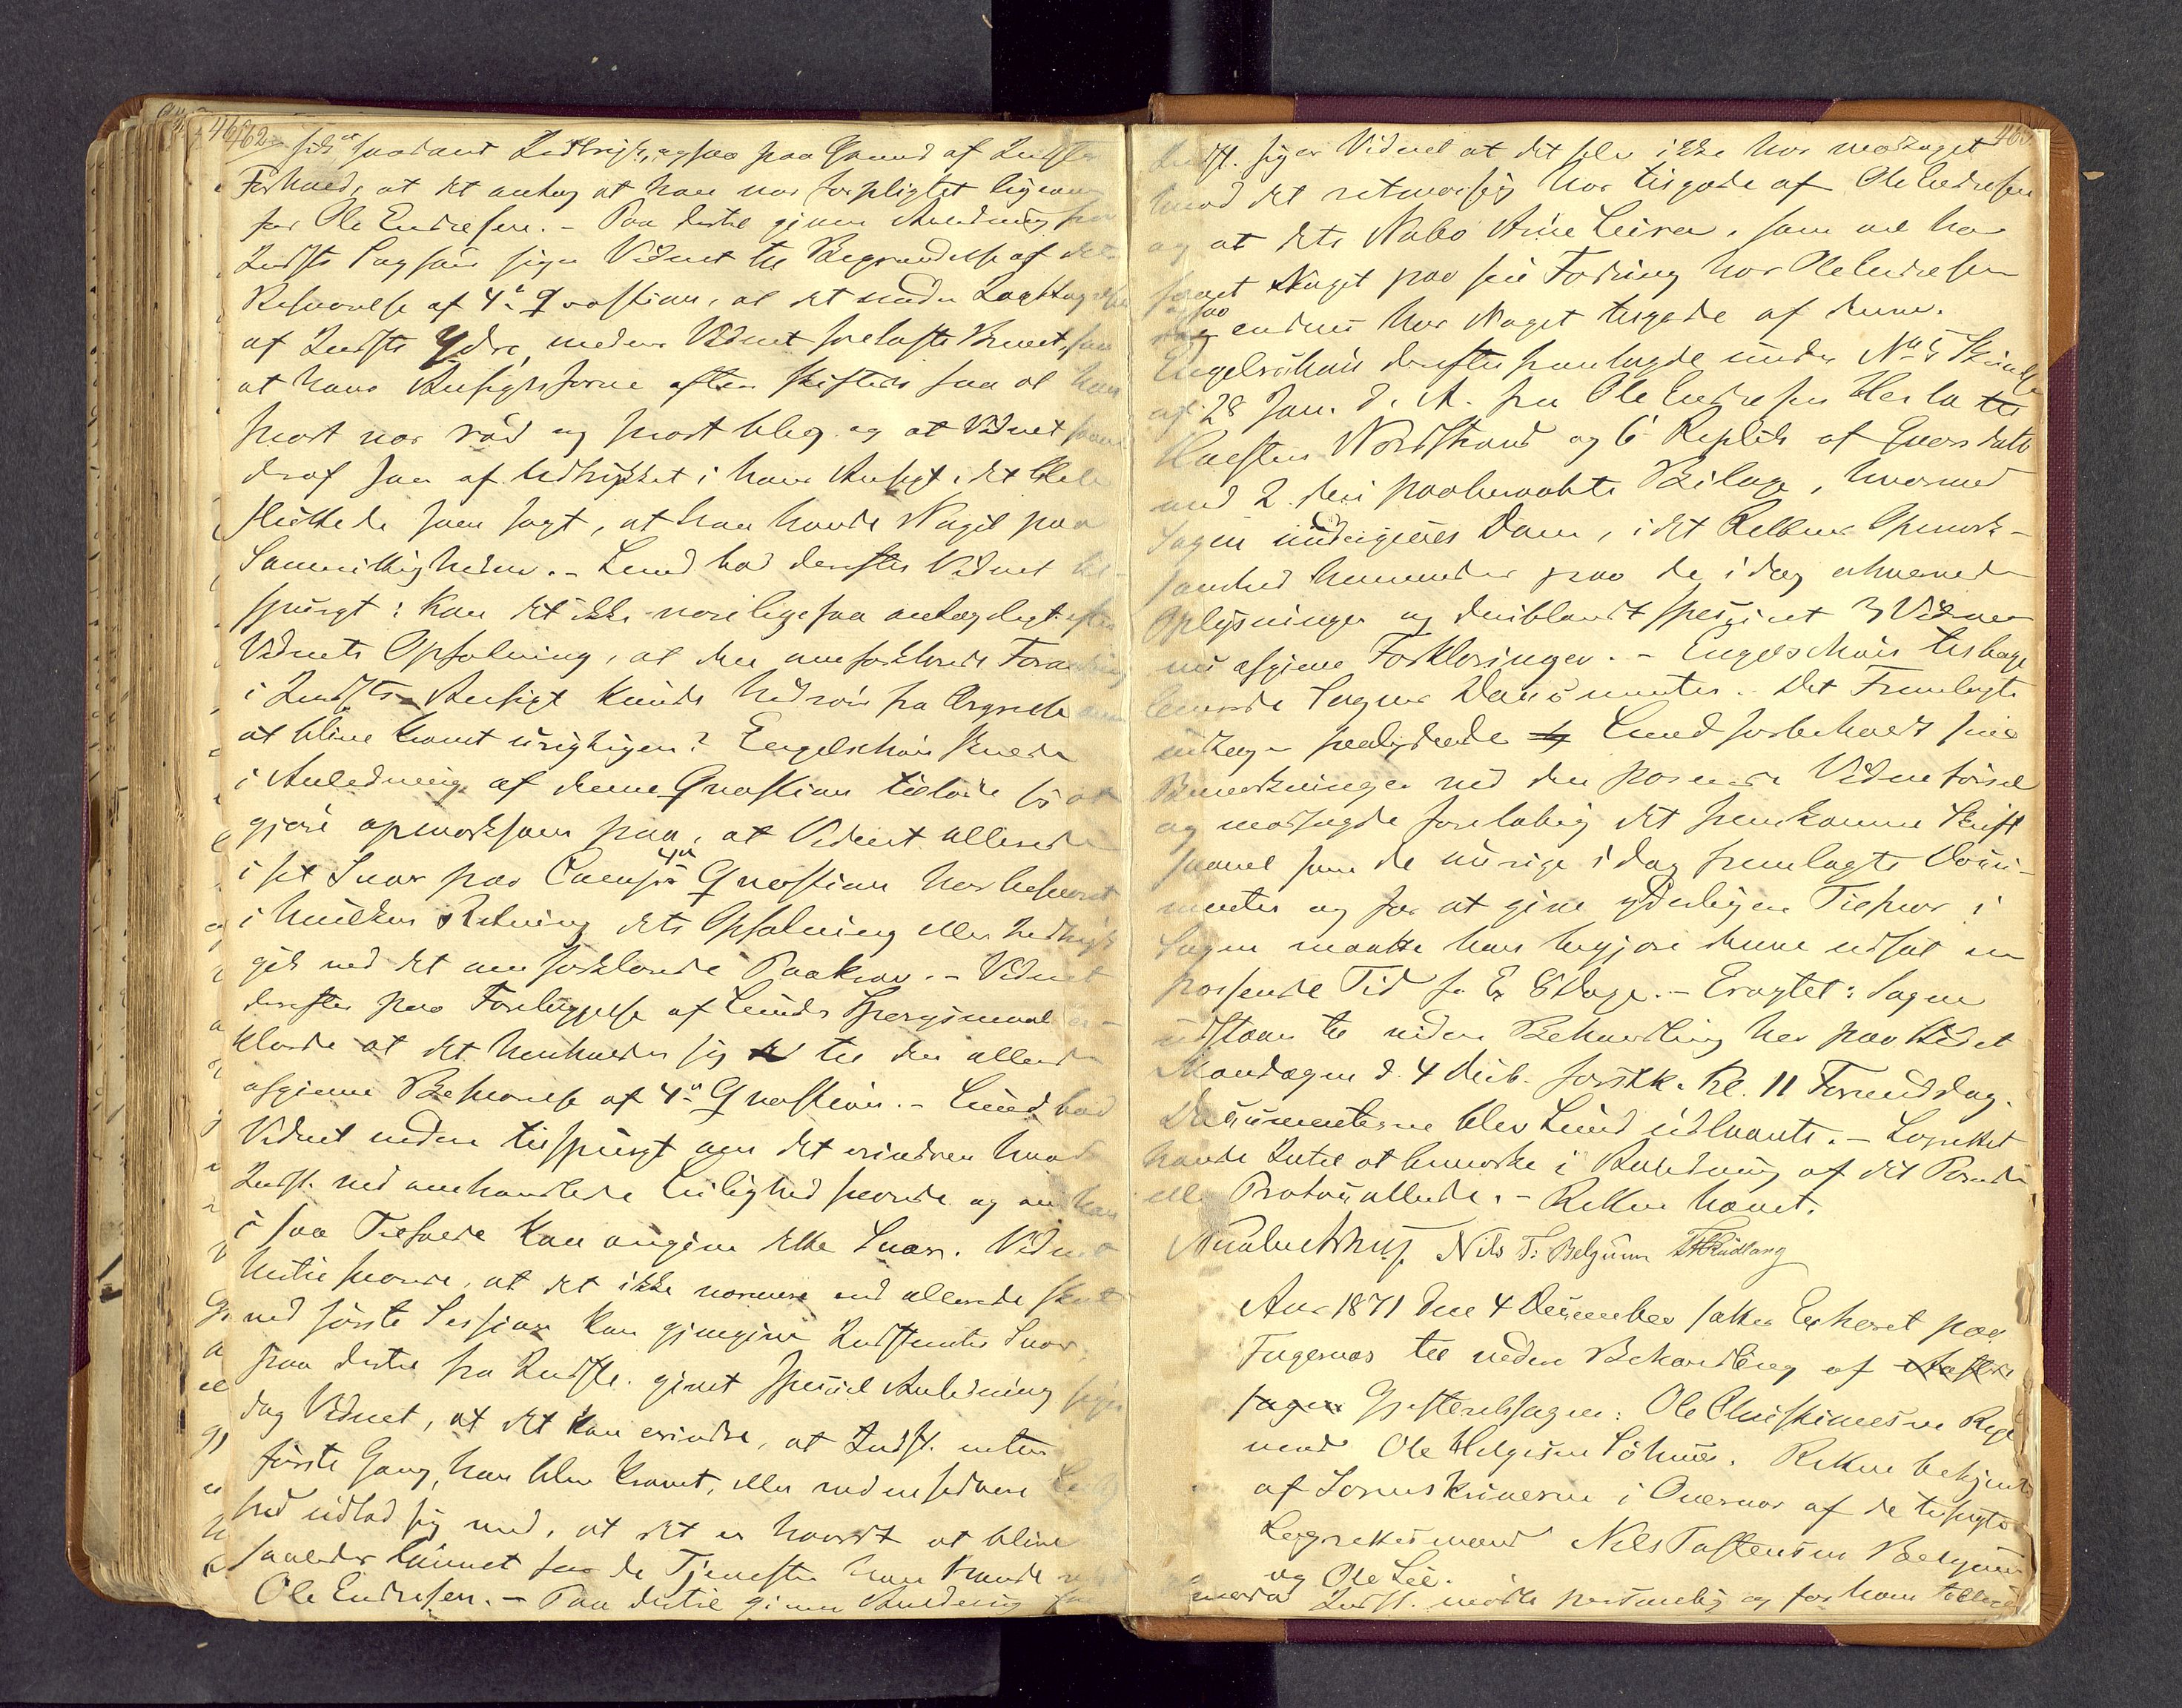 462
fik saadant Indtryk, ogsaa paa Grund af Indstts
Forhold, at det antog at han var forpligtet ligeoverfor
for Ole Endresen. - Paa dertil given Anledning fra
Indstts Sagfører siger Vidnet til Begrundelse af det
Besvarelse af 4de Qvæstion, at det under Iagttagelse
af Indstts Ydre, medens Vidnet forelæste Brevet, saa
at hans Ansigtsfarve ofte skiftede saa at han
snart var rød og snart bleg og at Vidnet
deraf saa af Udtrykket i hans Ansigt, idet hele
sluttede som sagt, at han havde Noget paa
Samvittigheden. - Lund bad derefter Vidnet til-
spurgt: Kan det ikke være ligesaa antageligt efter
Vidnets Opfatning, at den omforklarede Forandring
i Indstts Ansigt kunde hidrøre fra Ærgrelse over
at blive krævet urigtigen? Engelschøn
i Anledning af denne Qvæstion tillade sig at
gjøre opmærksom paa, at Vidnet allerede
i sit Svar paa 4de Qvæstion har besvaret
i hvilken Retning dets Opfatning eller Indtryk
gik ved det omforklarede Paakrav. - Vidnet
derefter paa Foreleggelse af Lunds Spørgsmaal er-
klærede at det henholder sig til den allerede
afgivne Besvarelse af 4de Qvæstion. - Lund bad
Vidnet videre tilspurgt om det erindrer hvad
Indst. ved omhandlede Leilighed svarede og om han
i saa Tilfælde kan angive dette Svar. Vidnet
hertil svarede, at det ikke nærmere end allerede skeet
ved første Session kan gjengive Indstevntes Svar,
paa dertil fra Indstts. givet speciel Anledning siger
dog Vidnet, at det kan erindre, at Indst. enten
første Gang, han blev krævet, eller ved en senere Leilig
hed udlod sig med, at det er haardt at blive
saaledes lønnet for de Tjenester han havde
Ole Endresen. - Paa dertil given Anledning fra
463
Indst. siger Vidnet at det selv ikke har modtaget
hvad det retmæssig har tilgode af Ole Endresen
og at dets Nabo Arne Leira, som vel har
faaet Noget paa sin Fordring hos Ole Endresen
ogsaa endnu har Noget tilgode af denne.
Engelschøn derefter fremlagde under No 5 Skrivelse
af 28 Jan. d. A. fra Ole Endresen Hesla til
Nordstrand og 6 Replik af Gaars dato
med 2 deri paaberaabte Bilage, hvormed
Sagen undergives Dom, idet Rettens Opmærk-
somhed henvendes paa de i dag erhvervede
Oplysninger og deriblandt specielt 3 Vidners
nu afgivne Forklaringer. - Engelschøn tilbage
leverede Sagens Documenter. Det Fremlagte
indtages saalydende Lund forbeholdt sine
Bemærkninger ved den passerede Vidneførsel
og modsagde foreløbig det fremkomne Skrift
saavel som de øvrige i dag fremlagte Docu-
menter og for at give yderligere Tilsvar i
Sagen maatte han begjære denne udsat en
passende Tid f. Ex 8 Dage. - Eragtet: Sagen
udstaar til videre Behandling her paa Stedet
Mandagen d. 4 Decb. førstk. Kl. 11 Formiddag.
Documenterne blev Lund udlaante. - Lagrettet
havde Intet at bemærke i Anledning af det Passerede
eller Protocollerede. - Retten hævet.
Nils T: Belgum
Aar 1871 den 4 December sattes Extraret paa
Fagernæs til videre Behandling af
sagen Gjesteretssagen: Ole Christiansen
mod Ole Helgesen Søhuus. Retten betjent
af Sorenskriveren i Overvær af de tilsagte
Lagrettesmænd Nils Tostensen Belgum
og Ole Lie.
Indst. mødte personlig og for ham tillige